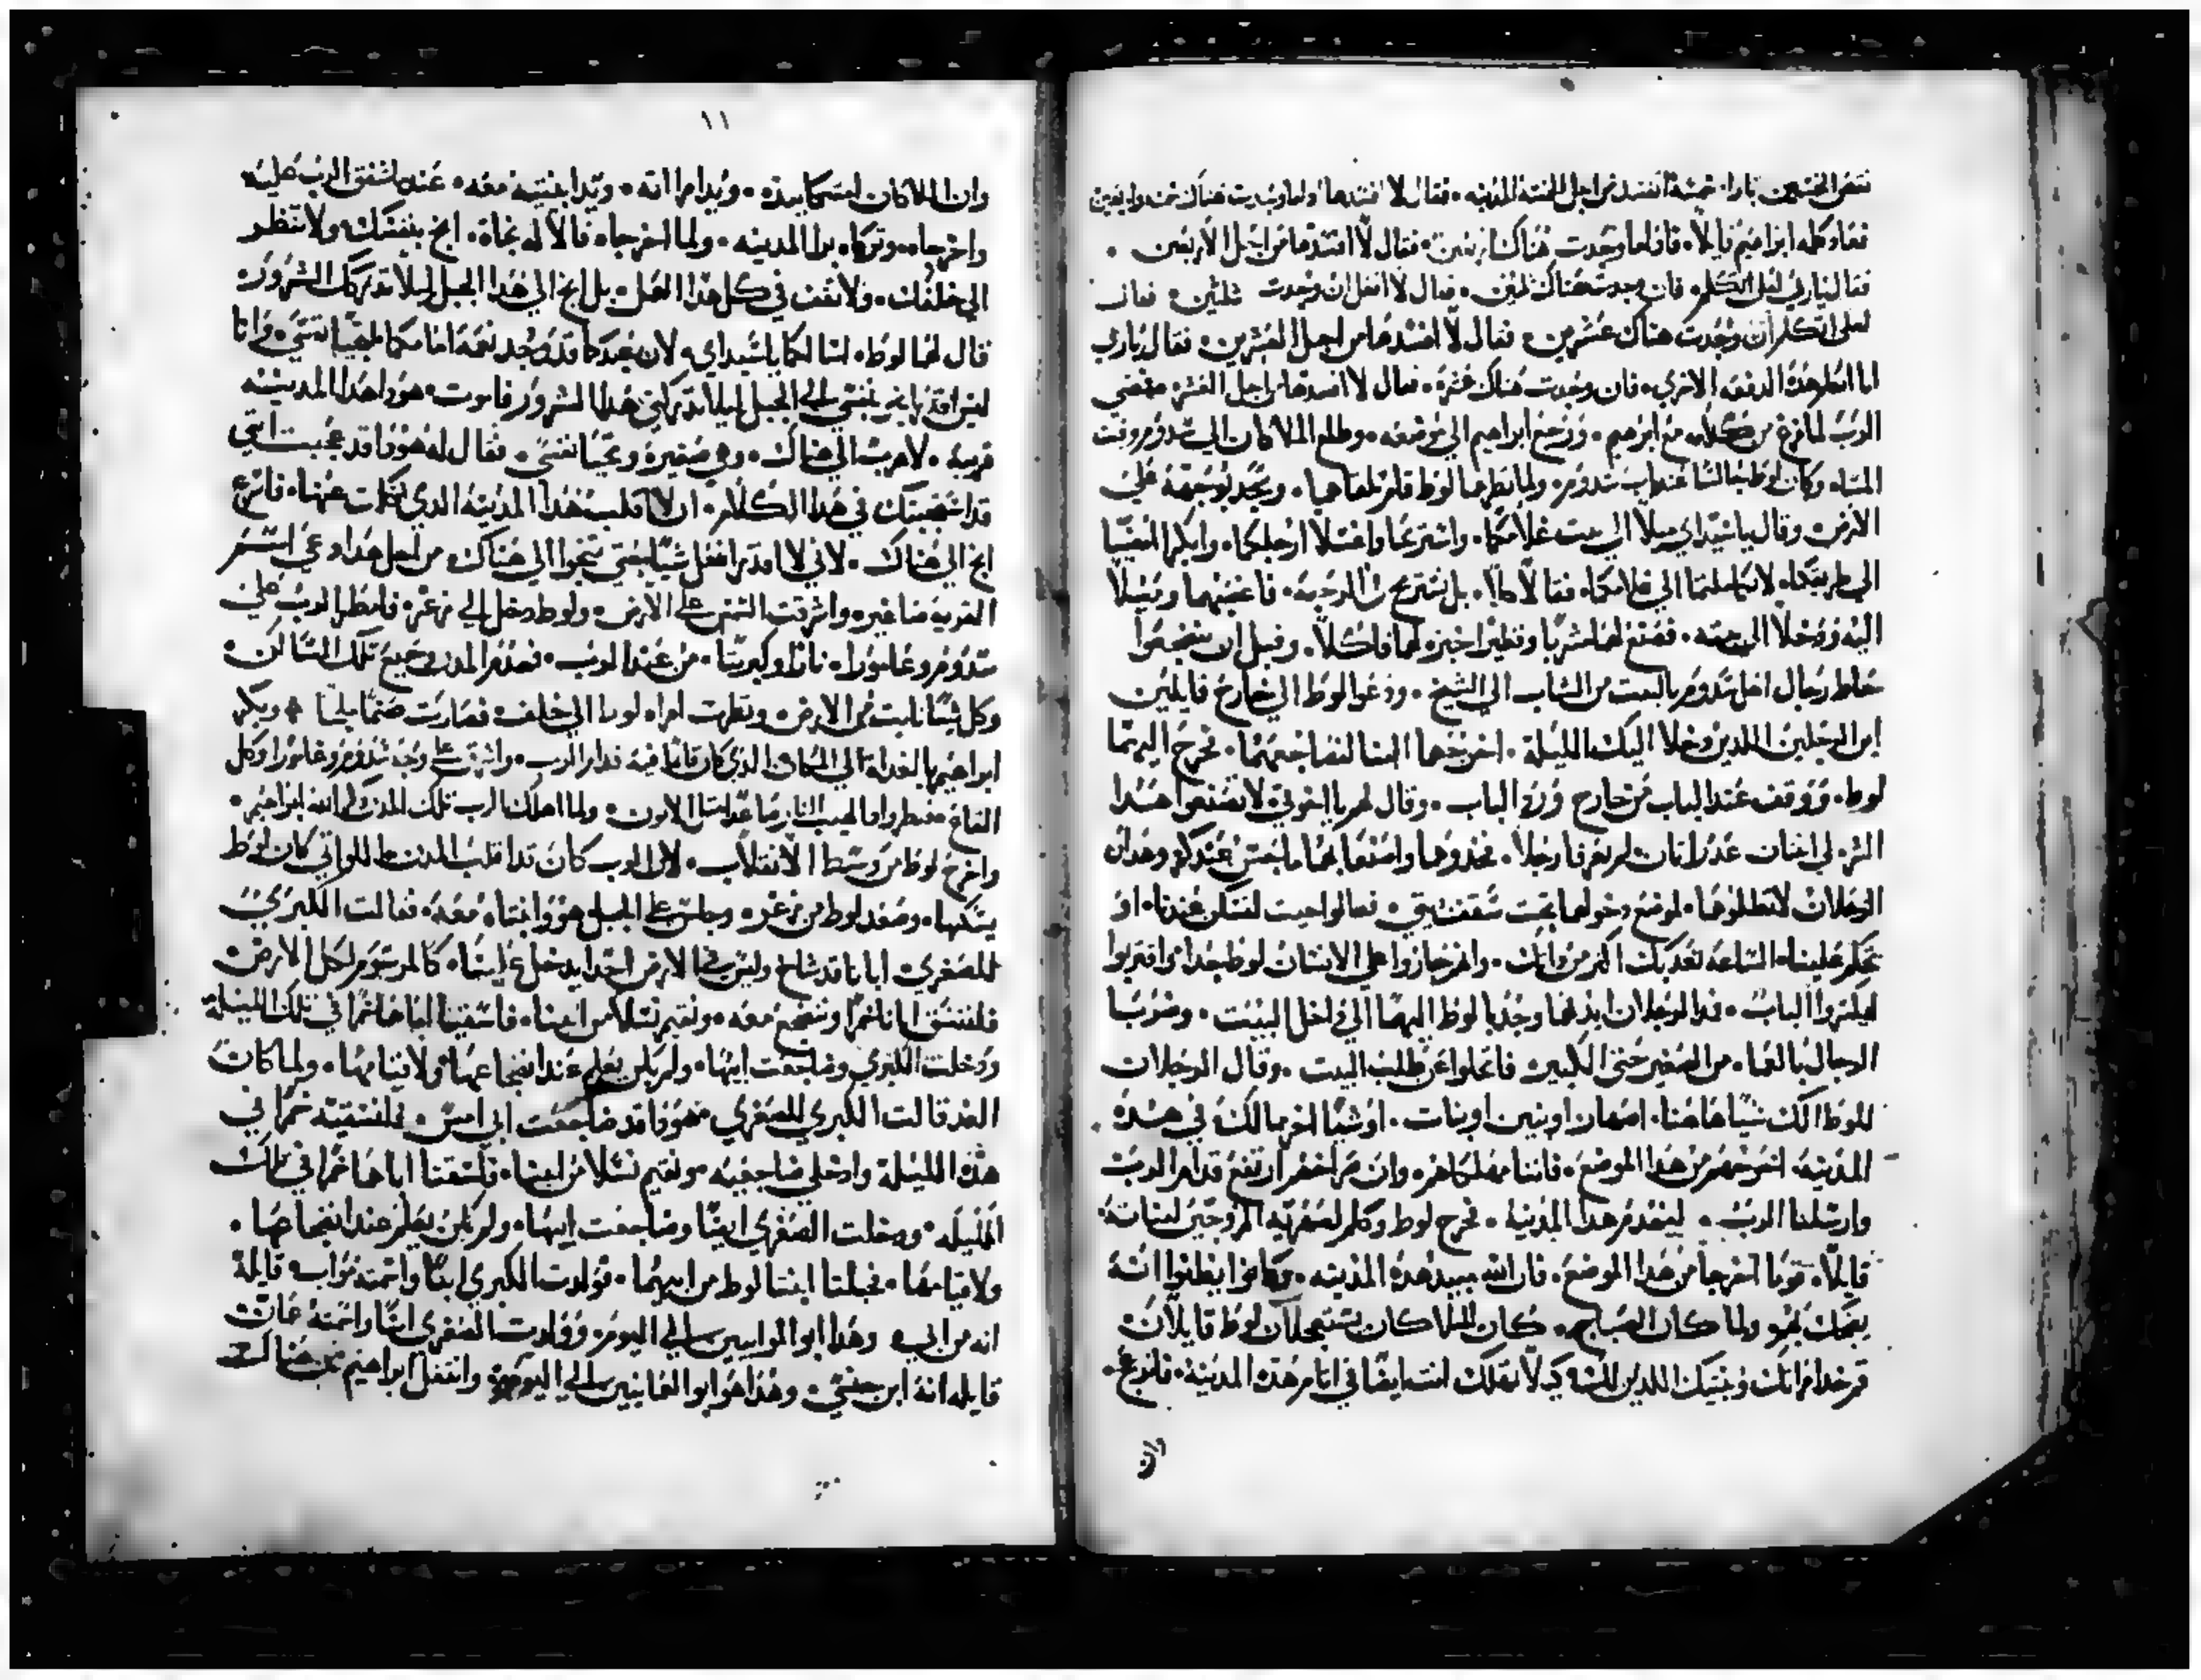 تنقص الخمسين بارا خمسة اتفسد من اجل الخمسة المدينه. فقال لا افسدها ولما وجدت هناك خمسه واربعين
فعاد كلمه ابراهيم قايلا. فاذا ما وجدت هناك اربعين. فقال لا افسدها من اجل الاربعين.
فقال يارب لعل اتكلم. فان وجدت هناك ثلثين. فقال لا افعل ان وجدت ثلثين. فقال
لعلى اتكلم ان وجدت هناك عشرين. فقال لا افسدها من اجل العشرين. فقال يارب
اما اتكلم هذه الدفعه الاخرى. فان وجدت هناك عشرة. فقال لا افسدها من اجل العشرة فمضى
الرب لما فرغ من كلامه مع ابرهيم. ورجع ابراهيم الى موضعه. وطلع الملاكان الى سدوم وقت
المساء وكان لوط جالسًا عند باب سدوم. ولما نظرهما لوط قام تلقاهما. وسجد بوجهه على
الارض وقال يا سيداي ميلا الى بيت غلامكما. واستريحا واغسلا ارجلكما. وابكرا لتمضيا
الى طريقكما. لانكما ملتما الى غلامكما. فقالا كلا. بل نستريح في الرحبة. فاغصبهما وميلا
اليه ودخلا الى بيته. فصنع لهما شربًا وفطيرًا خبزه لهما فاكلا. وقبل ان يضجعوا
حاط رجال اهل سدوم بالبيت من الشاب الى الشيخ. ودعوا لوط الى خارج قايلين
اين الرجلين اللذين دخلا اليك الليلة. اخرجهما الينا لنضاجعهما. فخرج اليهما
لوط. ووقف عند الباب من خارج ورد الباب. وقال لهم يا اخوتي لا تصنعوا هذا
الشر. لي ابنتان عذرانان لم يعرفا رجلا. فخذوهما واصنعا بهما ما يحسن عندكم وهذان
الرجلان لا تظلموهما. لموضع دخولهما تحت سقف بيتي. فقالوا جيت لتسكن عندنا. او
تحكم علينا. الساعة نعذبك اكثر من وانك. وانحازوا على الانسان لوط جدا واقتربوا
ليكسروا الباب. فمد الرجلان ايديهما وجذبا لوط اليهما الى داخل البيت. وضربا
الرجال بالعما. من الصغير حتى الكبير. فانحلوا عن طلب البيت. وقال الرجلان
للوط الك شيًا هاهنا. اصهان او بنين او بنات. او شيًا اخر مما لك في هذه
المدينة. اخرجهم من هذا الموضع. فاننا مهلكاهم. وان صراخهم ارتفع قدام الرب
وارسلنا الرب. لينقدم هذا المدينة. فخرج لوط وكلم لصهريه المزوجين لبناته.
قايلا. قوما اخرجا من هذا الموضع. فان الله يبيد هذه المدينه. وكانوا يظنوا انه
يضحك بهم. ولما كان الصباح. كان الملاكان يستعجلان لوط قايلان
قم خذ امراتك وبنتيك اللذين لك. كي لا تهلك انت ايضًا في اثام هذه المدينة. فانزعج.
وان
١١
وان الملاكان امسكا بيده. ويدا مراته. ويد ابنتيه معه. عند شفق الرب عليه
واخرجاه. وتركاه. برا المدينه. ولما اخرجاه قالا له نجاة. انج بنفسك ولا تنظر
الى خلفك. ولا تقف في كل هذا العمل. بل انج الى هذا الجبل ليلا تدركك الشرور.
قال لهما لوط. اسالكما يا سيداي. لان عبدكما قد وجد نعمه امامكما لتحيا نفسي. وانا
ليس اقدر انج نفسي الى الجبل ليلا تدركني هذا الشرور فاموت. هوذا هذا المدينه
قريبه. لاهرب الى هناك. وهي صغيرة وتحيا نفسي. فقال له هوذا قد عجبت اتى
قد استجبتك في هذا الكلام. ان لا اقلب هذا المدينة الذي تكلمت عنها. فاسرع
انج الى هناك. لاني لا اقدر افعل شيًا حتى تنجوا الى هناك. من اجل هذا دعي اسم
القرية صاغير. واشرقت الشمس على الارض. ولوط دخل الى زغر. فامطر الرب على
سدوم وعامورا. نارًا وكبريتًا. من عند الرب. فهدم المدن وجميع تلك المساكن.
وكل شيًا نابت من الارض. ونظرت امراه لوط الى خلف. فصارت صنمًا ملحًا. وبكر
ابراهيم بالغداة الى المكان الذي كان قايمًا فيه قدام الرب. واشرف على وجه سدوم وعامورا وكل
القاع فنظر واذا لهيب النار صاعد امثل الاتون. ولما اهلك الرب تلك المدن ذكر الله ابراهيم.
واخرج لوط من وسط الانقلاب. لان الرب كان قد اقلب المدينه اللواتي كان لوط
يسكنها. وصعد لوط من زغر. وجلس على الجبل هو وابنتاه معه. فقالت الكبرى
للصغرى ابانا قد شاخ وليس على الارض احدًا يدخل علينا. كالمرسوم لكل الارض
فلنسق ابانا خمرًا ونضجع معه. ونقيم نسلا من ابينا. فاسقيتا اباهما خمرًا في تلك الليلة
ودخلت الكبرى وضاجعت ابيها. ولم يكن يعلم عند اضجاعها ولا قيامها. ولما كان
الغد قالت الكبرى للصغرى هوذا قد ضاجعت ابي امس. فلنسقيه خمرًا في
هذه الليلة وادخلي ضاجعيه ونقيم نسلا من ابينا. فاسقتا اباهما خمرًا في تلك
الليله. ودخلت الصغرى ايضًا وضاجعت ابيها. ولم يكن يعلم عند اضجاعها.
ولا قيامها. فحبلتا ابنتا لوط من ابيهما. فولدت الكبرى ابنًا واسمته مواب قايلة
انه من ابي. وهذا ابو الموابيين الى اليوم. وولدت الصغرى ابنًا واسمته عمان
قايله انه ابن جنسي. وهذا هو ابو العمانيين الى اليوم. وانتقل ابراهيم من هناك